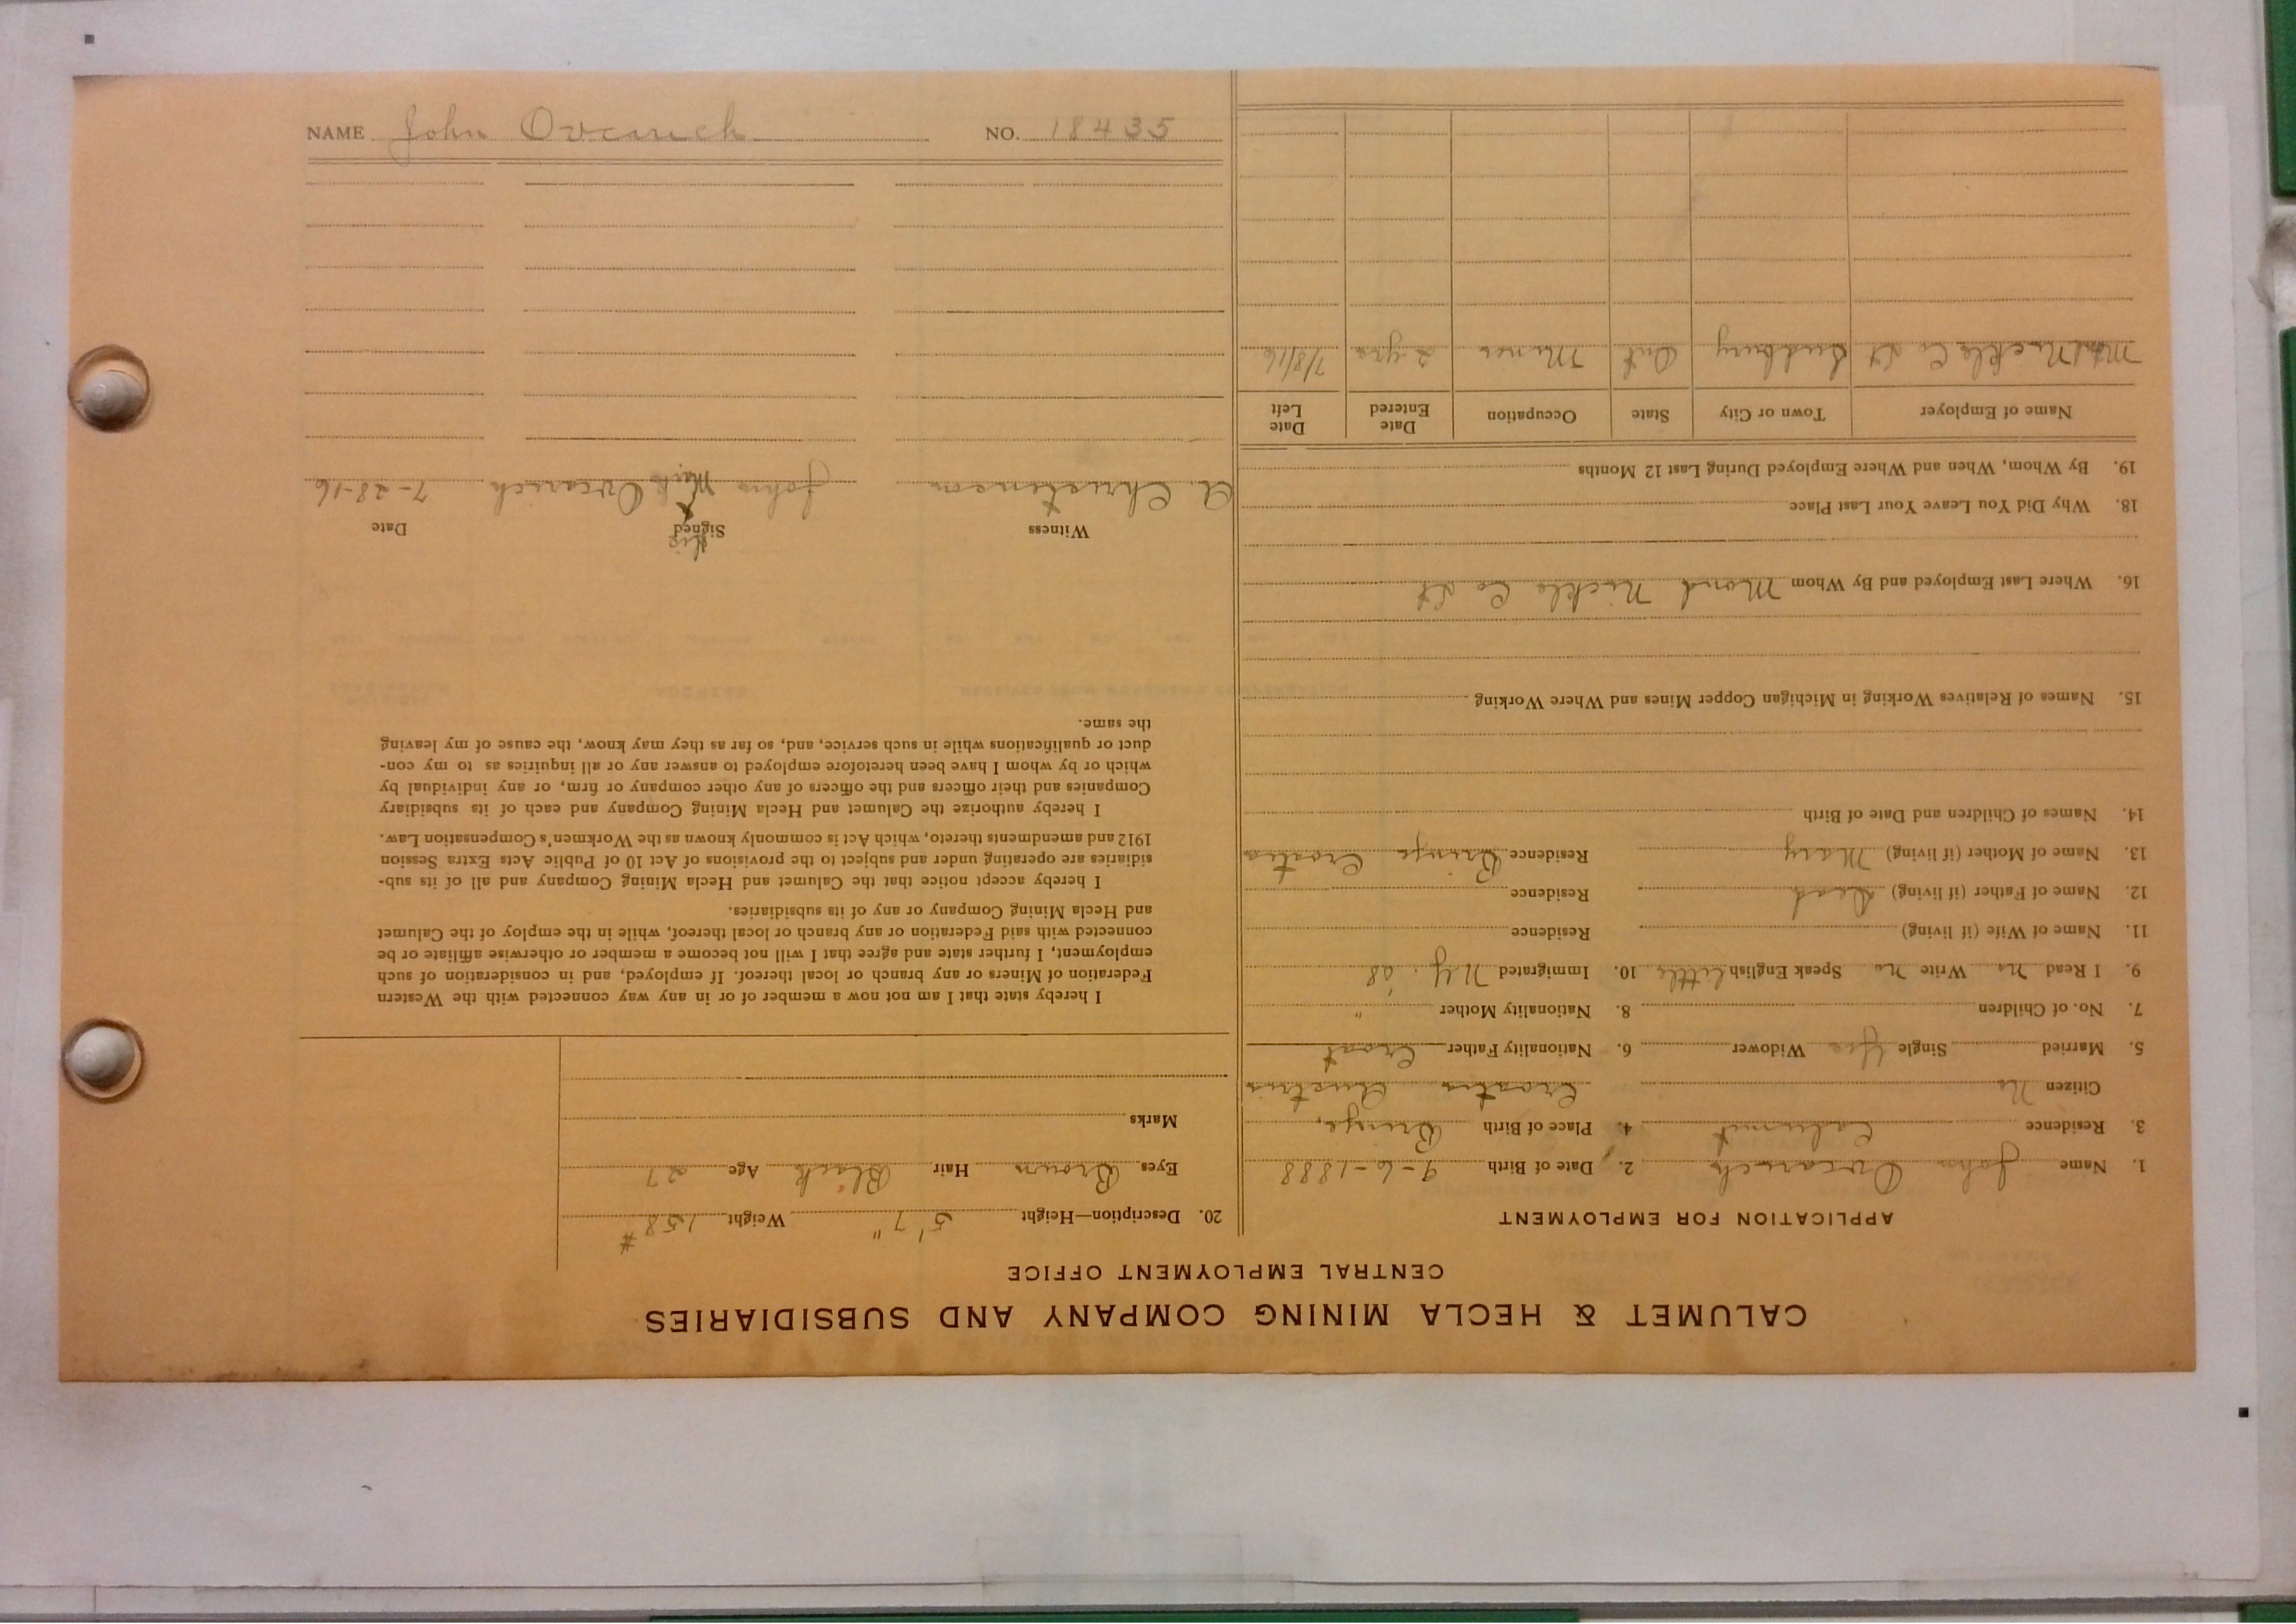 NAME John Ovcarich NO. 18435
CALUMET & HECLA MINING COMPANY AND SUBSIDIARIES
CENTRAL EMPLOYMENT OFFICE
APPLICATION FOR EMPLOYMENT
1. Name John Ovcarich 2. Date of Birth 9-6-1888
3. Residence Calumet 4. Place of Birth Brinje,
Citizen No Croatia Austria
5. Married Single Yes Widower 6. Nationality Father Croat
7. No. of Children 8. Nationality Mother "
9. I Read no Write no Speak English little 10. Immigrated N.Y. '08
11. Name of Wife (if living) Residence
12. Name of Father (if living) Dead Residence
13. Name of Mother (if living) Mary Residence Brinje Croatia
14. Names of Children and Date of Birth
15. Names of Relatives Working in Michigan Copper Mines and Where Working
16. Where Last Employed and By Whom Mond Nickle Co Lt
18. Why Did You Leave Your Last Place
19. By Whom, When and Where Employed During Last 12 Months
Name of Employer Town or City State Occupation Date Entered Date Left
Mond Nickle Co Lt Sudbury Ont Miner 2 yrs 7/8/16
20. Description—Height 5' 7" Weight 158 #
Eyes Brown Hair Black Age 27
Marks
I hereby state that I am not now a member of or in any way connected with the Western
Federation of Miners or any branch or local thereof. If employed, and in consideration of such
employment, I further state and agree that I will not become a member or otherwise affiliate or be
connected with said Federation or any branch or local thereof, while in the employ of the Calumet
and Hecla Mining Company or any of its subsidiaries.
I hereby accept notice that the Calumet and Hecla Mining Company and all of its sub-
sidiaries are operating under and subject to the provisions of Act 10 of Public Acts Extra Session
1912 and amendments thereto, which Act is commonly known as the Workmen's Compensation Law.
I hereby authorize the Calumet and Hecla Mining Company and each of its subsidiary
Companies and their officers and the officers of any other company or firm, or any individual by
which or by whom I have been heretofore employed to answer any or all inquiries as to my con-
duct or qualifications while in such service, and, so far as they may know, the cause of my leaving
the same.
Witness Signed Date
his
A. Christenson John X Ovcarich 7-28-16
Mark